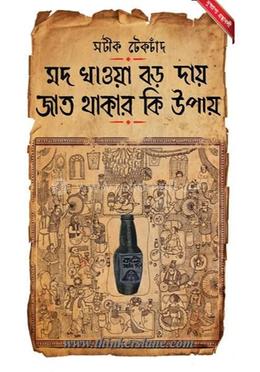 সটীক টেকচাঁদ
মদ খাওয়া বড় দায়
জাত থাকার কি উপায়
www.thinkerslane.com